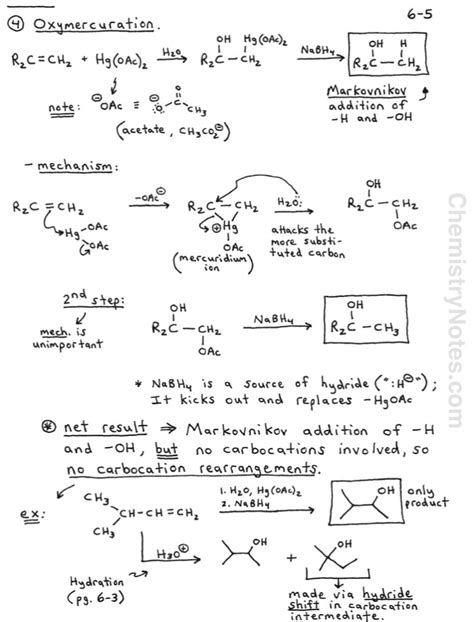 6-5
④ Oxymercuration.
R₂C=CH₂ + Hg(OAc)₂ →H₂O OH Hg(OAc)₂ R₂C—CH₂ →NaBH₄ OH H R₂C—CH₂
note: ⊖OAc ≡ ⊖:O: O CH₃
(acetate, CH₃CO₂⊖)
Markovnikov
addition of
-H and -OH
- mechanism:
R₂C=CH₂ Hg OAc OAc →-OAc⊖ R₂C—CH₂ ⊕Hg OAc →H₂O: OH R₂C—CH₂ OAc
(mercuridium
ion)
attacks the
more substi-
tuted carbon
2nd step:
mech. is
unimportant
OH R₂C—CH₂ OAc →NaBH₄ OH R₂C—CH₃
* NaBH₄ is a source of hydride (":H⊖");
It kicks out and replaces -HgOAc
⊛ net result ⇒ Markovnikov addition of -H
and -OH, but no carbocations involved, so
no carbocation rearrangements.
ex: CH₃ CH₃ CH-CH=CH₂
1. H₂O, Hg(OAc)₂
2. NaBH₄
OH
only
product
H₃O⊕ → OH + OH
Hydration
(pg. 6-3)
made via hydride
shift in carbocation
intermediate.
ChemistryNotes.com